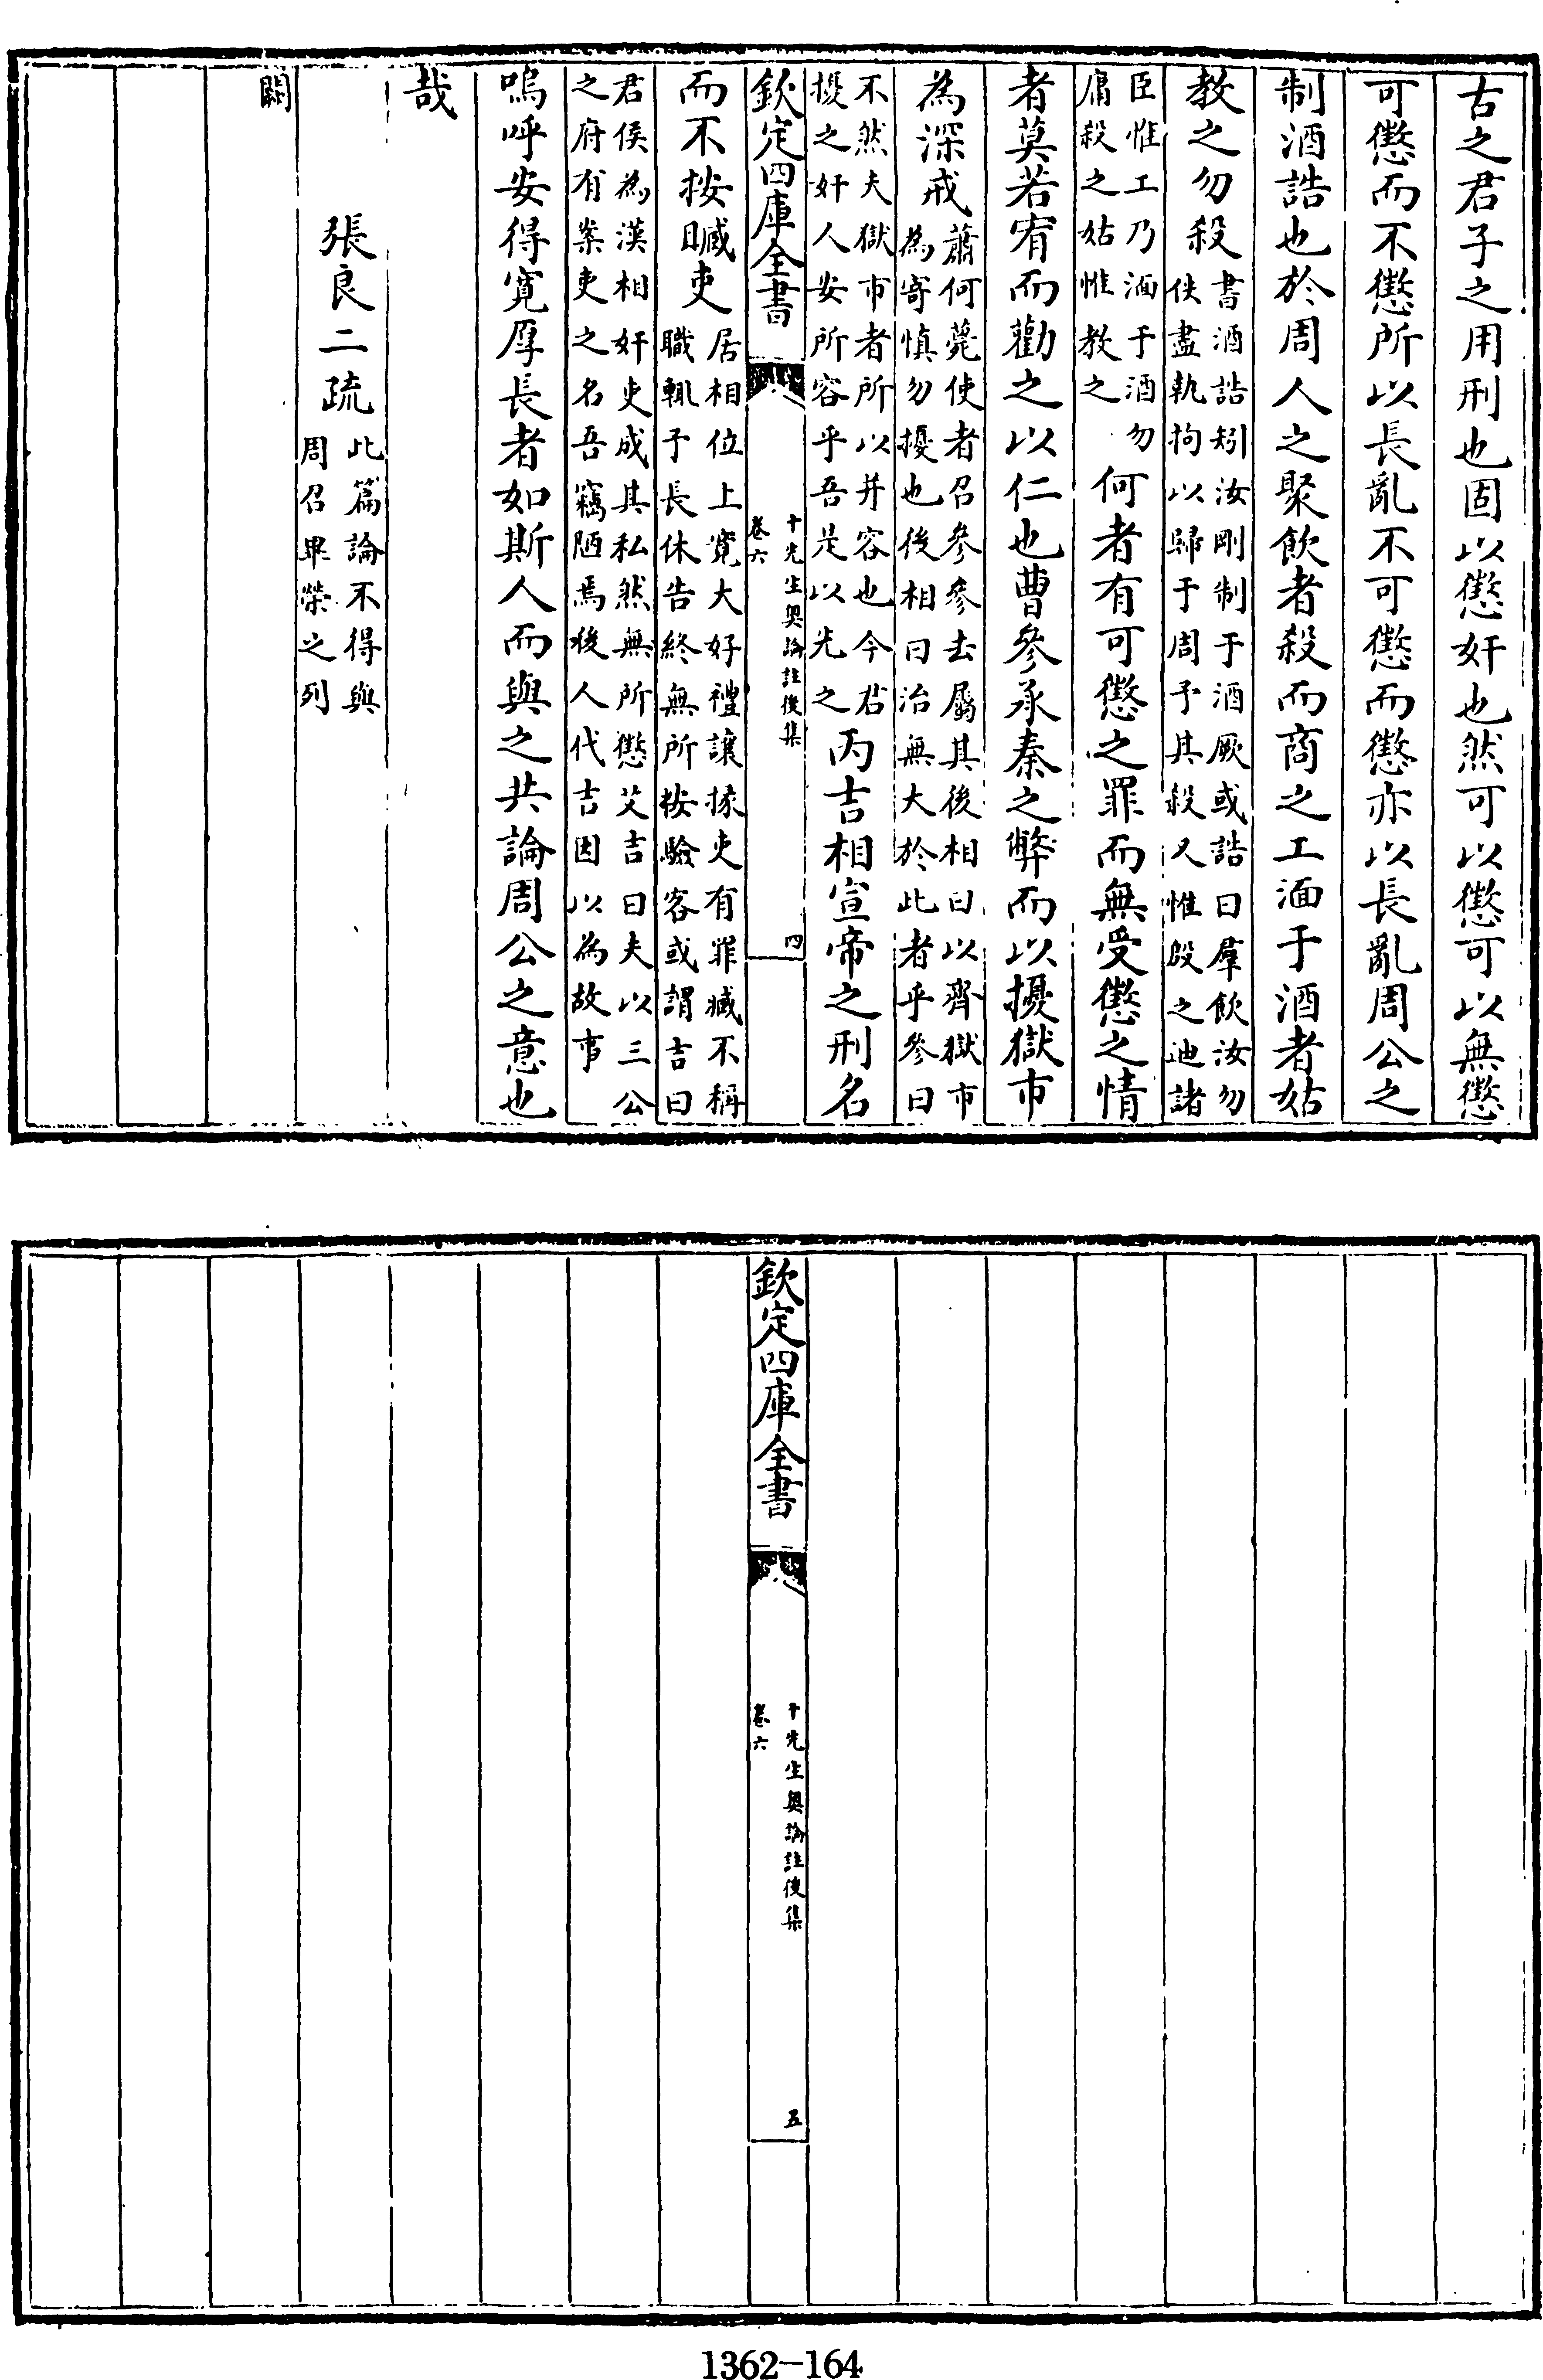 古之君子之用刑也固以懲奸也然可以懲可以無懲
可懲而不懲所以長亂不可懲而懲亦以長亂周公之
制酒誥也於周人之聚飲者殺而商之工湎于酒者姑
教之勿殺書酒誥矧汝剛制于酒厥或誥曰羣飲汝勿
佚盡執拘以歸于周予其殺又惟殷之迪諸
臣惟工乃湎于酒勿
庸殺之姑惟教之何者有可懲之罪而無受懲之情
者莫若宥而勸之以仁也曹參承秦之弊而以擾獄市
為深戒蕭何薨使者召參參去屬其後相曰以齊獄市
為寄慎勿擾也後相曰治無大於此者乎參曰
不然夫獄市者所以并容也今君
擾之奸人安所容乎吾是以先之丙吉相宣帝之刑名
欽定四庫全書
十先生奧論註後集
卷六
四
而不按贓吏居相位上寬大好禮讓掾吏有罪贓不稱
職輒予長休告終無所按驗客或謂吉曰
君侯為漢相奸吏成其私然無所懲艾吉曰夫以三公
之府有案吏之名吾竊陋焉後人代吉因以為故事
嗚呼安得寬厚長者如斯人而與之共論周公之意也
哉
張良二疏此篇論不得與
周召畢榮之列
闕
欽定四庫全書
十先生奧論註後集
卷六
五
1362-164